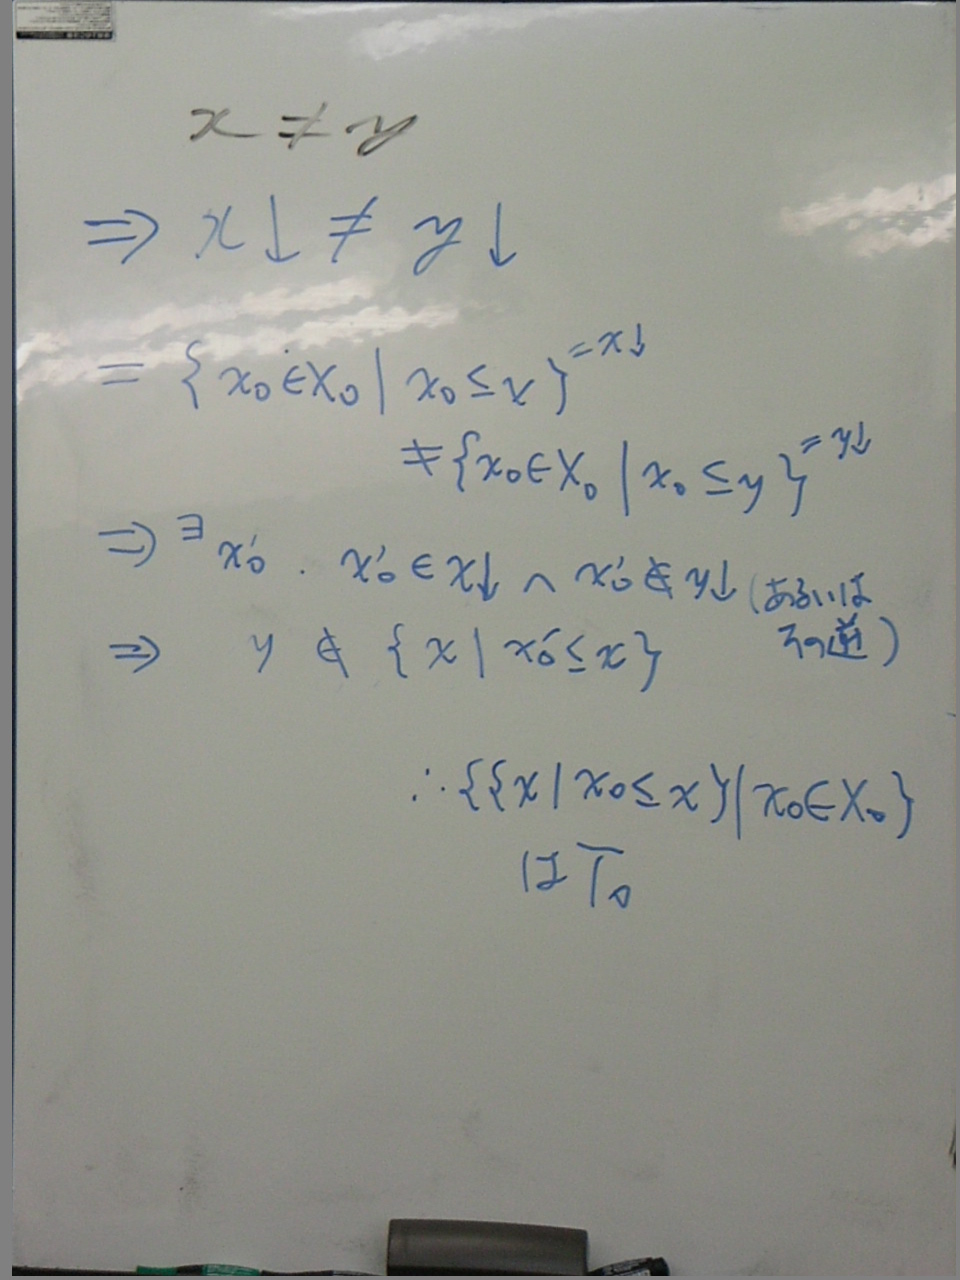 x ≠ y
⇒ x↓ ≠ y↓
= {x₀ ∈ X₀ | x₀ ≤ x} = x↓
≠ {x₀ ∈ X₀ | x₀ ≤ y} = y↓
⇒ ∃x₀′. x₀′ ∈ x↓ ∧ x₀′ ∉ y↓ (あるいは
その逆)
⇒ y ∉ {x | x₀′ ≤ x}
∴ {{x | x₀ ≤ x} | x₀ ∈ X₀}
は T₀